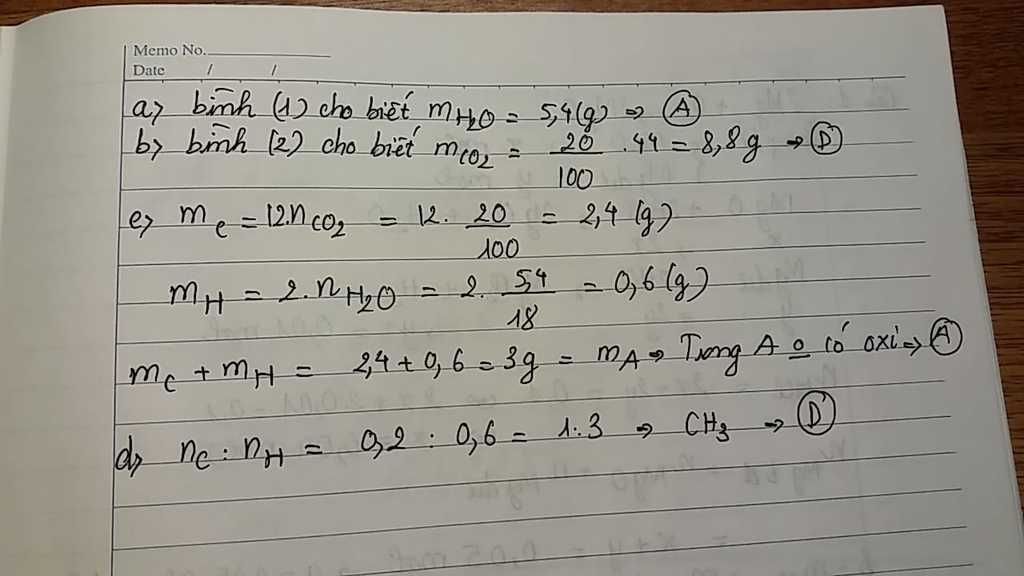 Memo No.
Date / /
a) bình (1) cho biết mH₂O = 5,4(g) => (A)
b) bình (2) cho biết mCO₂ = 20/100 .44 = 8,8g => (D)
c) mC = 12.nCO₂ = 12. 20/100 = 2,4 (g)
mH = 2.nH₂O = 2. 5,4/18 = 0,6(g)
mC + mH = 2,4+0,6 = 3g = mA => Trong A o có oxi => (A)
d) nC : nH = 0,2 : 0,6 = 1:3 => CH₃ => (D)